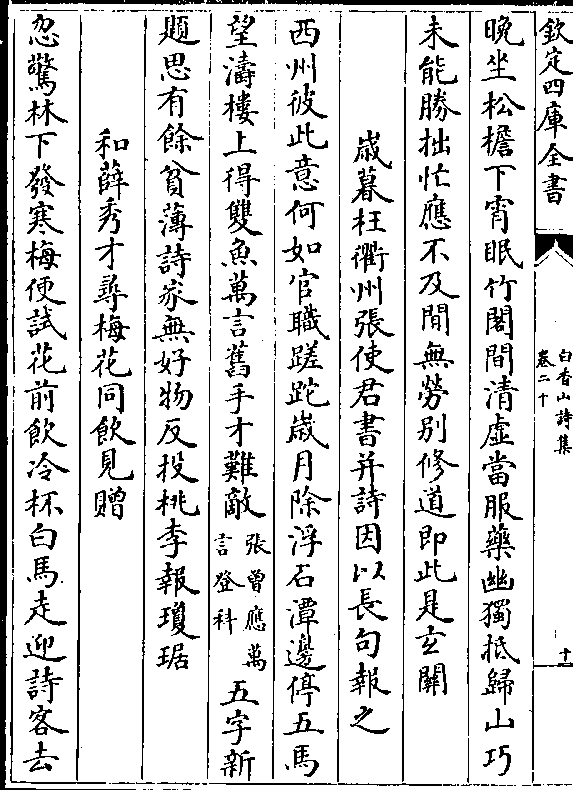 欽定四庫全書
白香山詩集
卷二十
十
晚坐松檐下宵眠竹閣間清虛當服藥幽獨抵歸山巧
未能勝拙忙應不及閒無勞別修道即此是玄關
歲暮枉衢州張使君書并詩因以長句報之
西州彼此意何如官職蹉跎歲月除浮石潭邊停五馬
望濤樓上得雙魚萬言舊手才難敵張曾應萬言登科五字新
題思有餘貧薄詩家無好物反投桃李報瓊琚
和薛秀才尋梅花同飲見贈
忽驚林下發寒梅便試花前飲冷杯白馬走迎詩客去